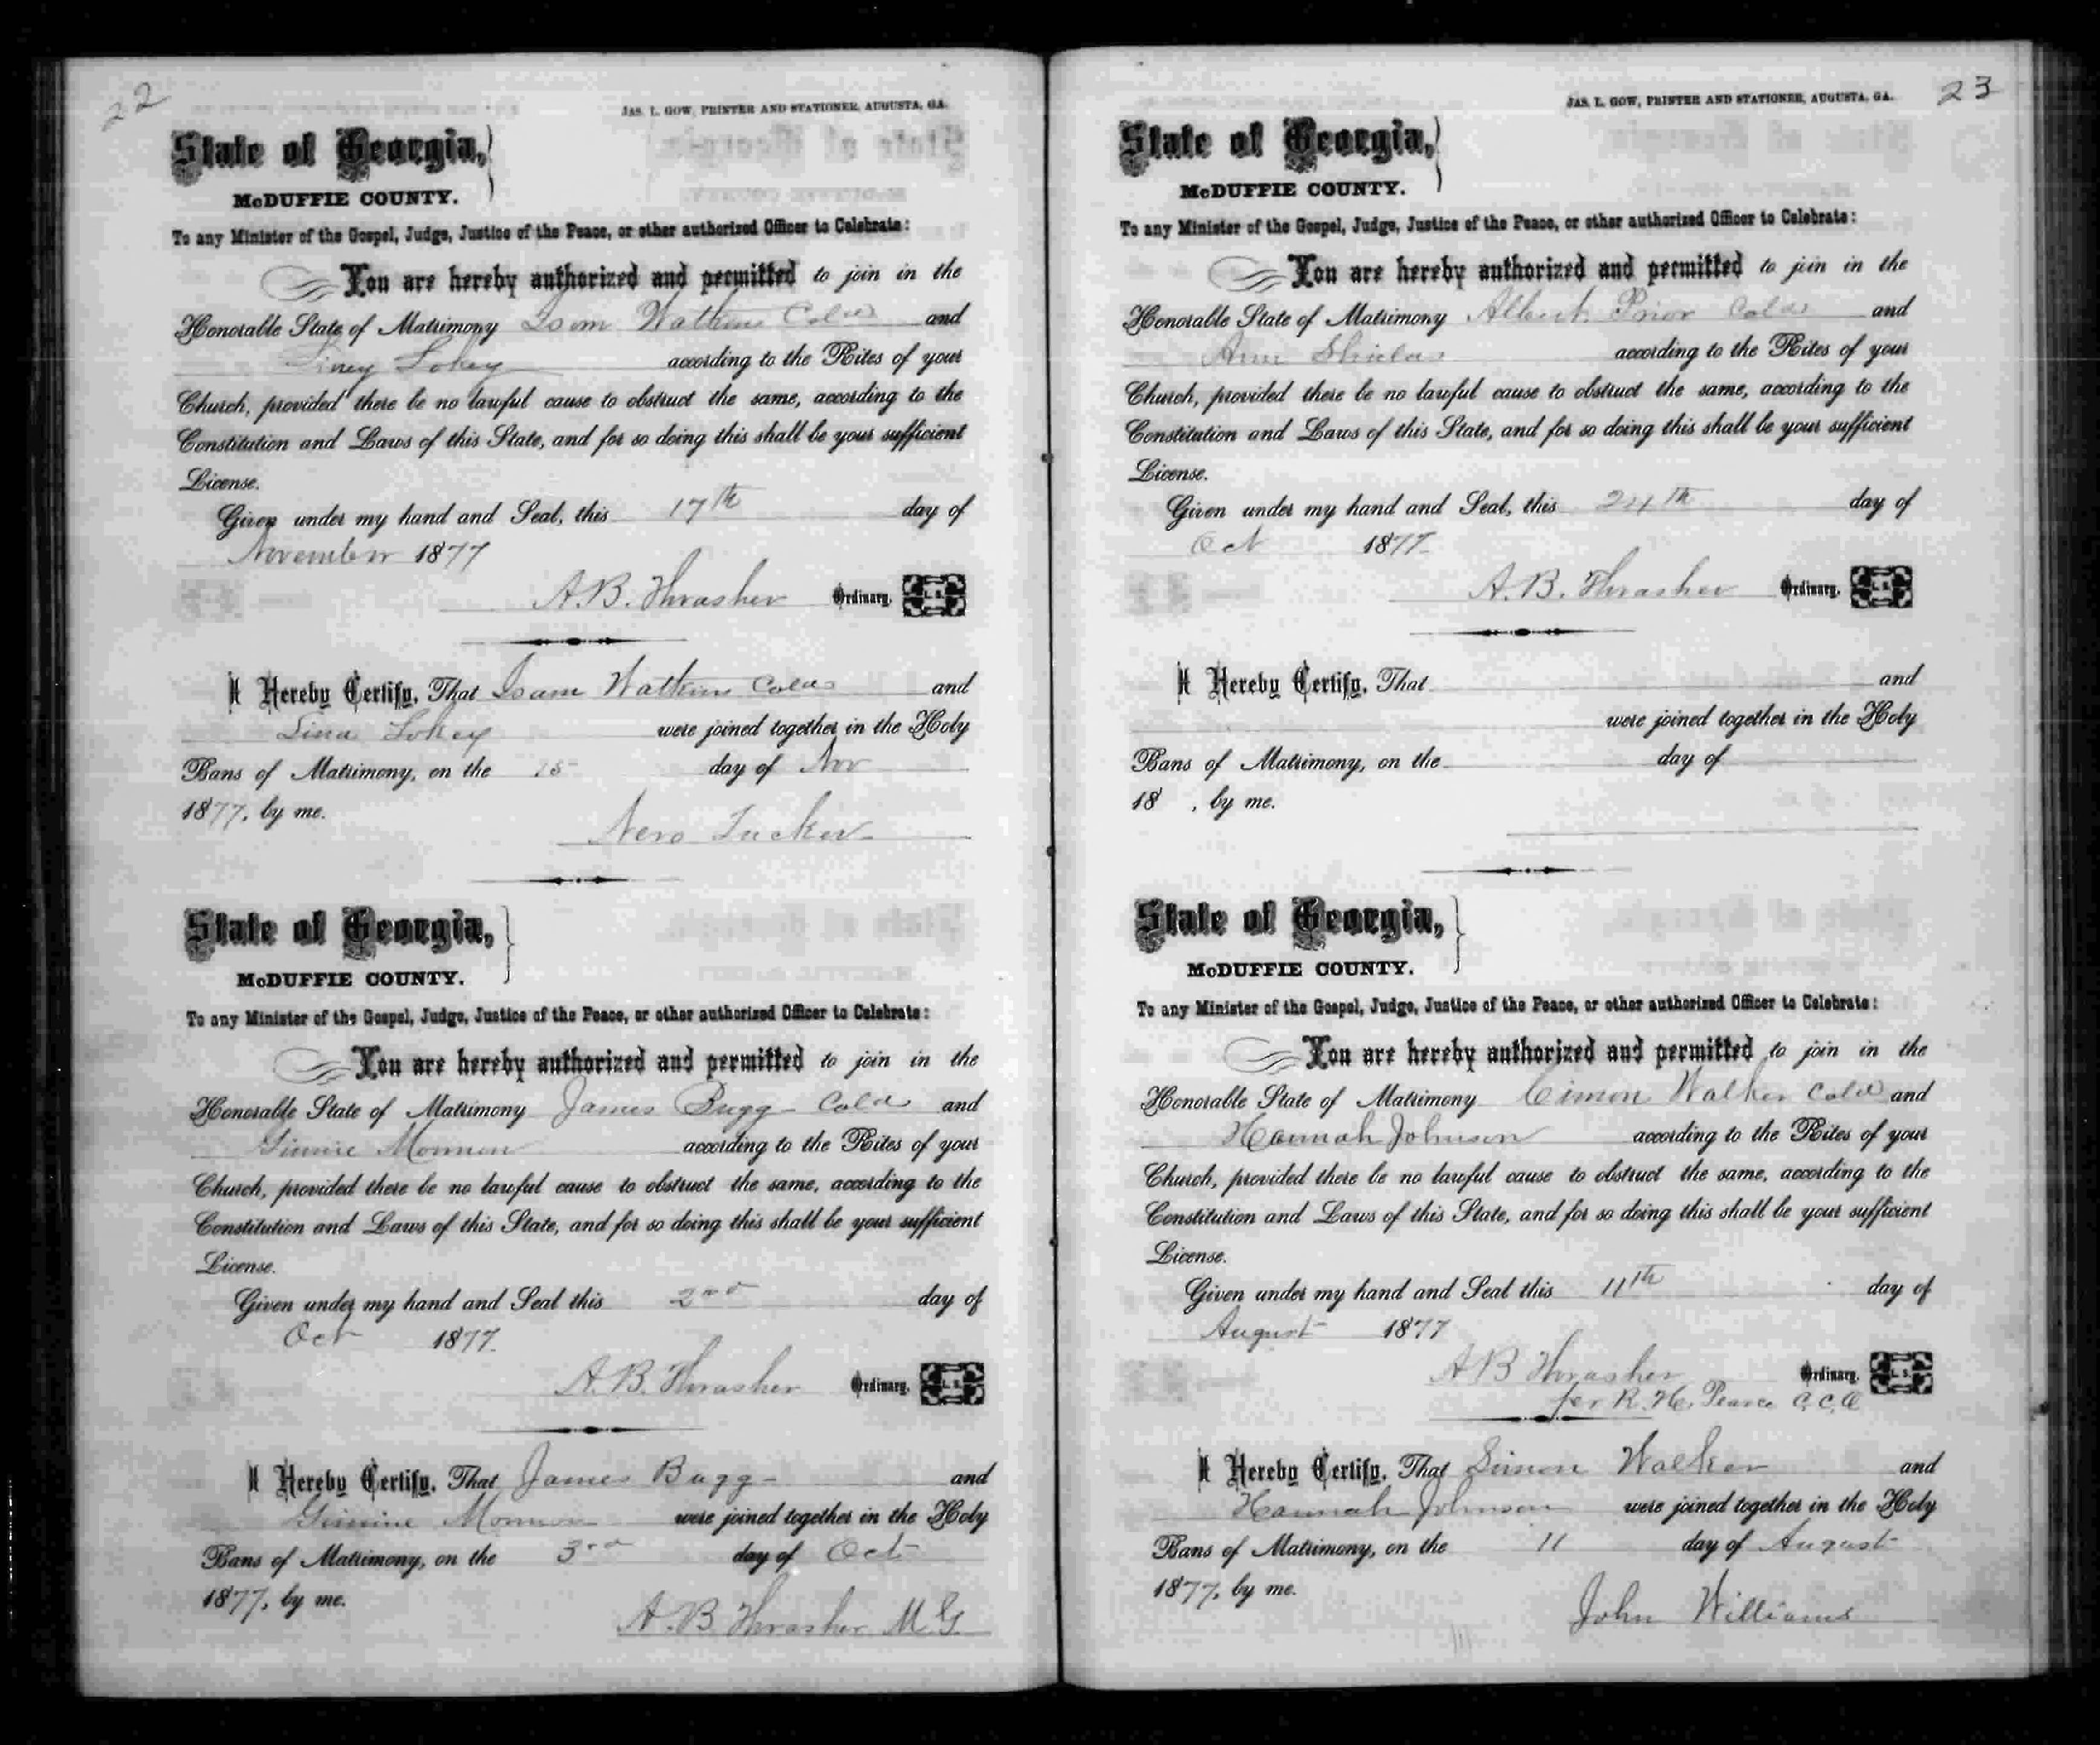 22
JAS. L. GOW, PRINTER AND STATIONER, AUGUSTA, GA.
State of Georgia,
McDUFFIE COUNTY.
To any Minister of the Gospel, Judge, Justice of the Peace, or other authorized Officer to Celebrate:
You are hereby authorized and permitted to join in the
Honorable State of Matrimony Isom Watkins Cold and
Liney Lokey according to the Rites of your
Church, provided there be no lawful cause to obstruct the same, according to the
Constitution and Laws of this State, and for so doing this shall be your sufficient
License.
Given under my hand and Seal, this 17th day of
November 1877
A. B. Thrasher Ordinary. L. S.
I Hereby Certify, That Isam Watkins Cold and
Lina Lokey were joined together in the Holy
Bans of Matrimony, on the 15 day of Nov
1877, by me.
Nero Tucker
State of Georgia,
McDUFFIE COUNTY.
To any Minister of the Gospel, Judge, Justice of the Peace, or other authorized Officer to Celebrate:
You are hereby authorized and permitted to join in the
Honorable State of Matrimony James Bugg Cold and
Ginnie according to the Rites of your
Church, provided there be no lawful cause to obstruct the same, according to the
Constitution and Laws of this State, and for so doing this shall be your sufficient
License.
Given under my hand and Seal this 2nd day of
Oct 1877
A. B. Thrasher Ordinary. L. S.
I Hereby Certify, That James Bugg and
Ginnie were joined together in the Holy
Bans of Matrimony, on the 3rd day of Oct
1877, by me.
A. B. Thrasher M. G.
23
JAS. L. GOW, PRINTER AND STATIONER, AUGUSTA, GA.
State of Georgia,
McDUFFIE COUNTY.
To any Minister of the Gospel, Judge, Justice of the Peace, or other authorized Officer to Celebrate:
You are hereby authorized and permitted to join in the
Honorable State of Matrimony Albert Prior Cold and
Ann Shields according to the Rites of your
Church, provided there be no lawful cause to obstruct the same, according to the
Constitution and Laws of this State, and for so doing this shall be your sufficient
License.
Given under my hand and Seal, this 24th day of
Oct 1877
A. B. Thrasher Ordinary. L. S.
I Hereby Certify, That and
were joined together in the Holy
Bans of Matrimony, on the day of
18 , by me.
State of Georgia,
McDUFFIE COUNTY.
To any Minister of the Gospel, Judge, Justice of the Peace, or other authorized Officer to Celebrate:
You are hereby authorized and permitted to join in the
Honorable State of Matrimony Cimon Walker Cold and
Hannah Johnson according to the Rites of your
Church, provided there be no lawful cause to obstruct the same, according to the
Constitution and Laws of this State, and for so doing this shall be your sufficient
License.
Given under my hand and Seal this 11th day of
August 1877
A B Thrasher Ordinary. L. S.
per R. H. Pearce C. C. O
I Hereby Certify, That Simon Walker and
Hannah Johnson were joined together in the Holy
Bans of Matrimony, on the 11 day of August
1877, by me.
John Williams